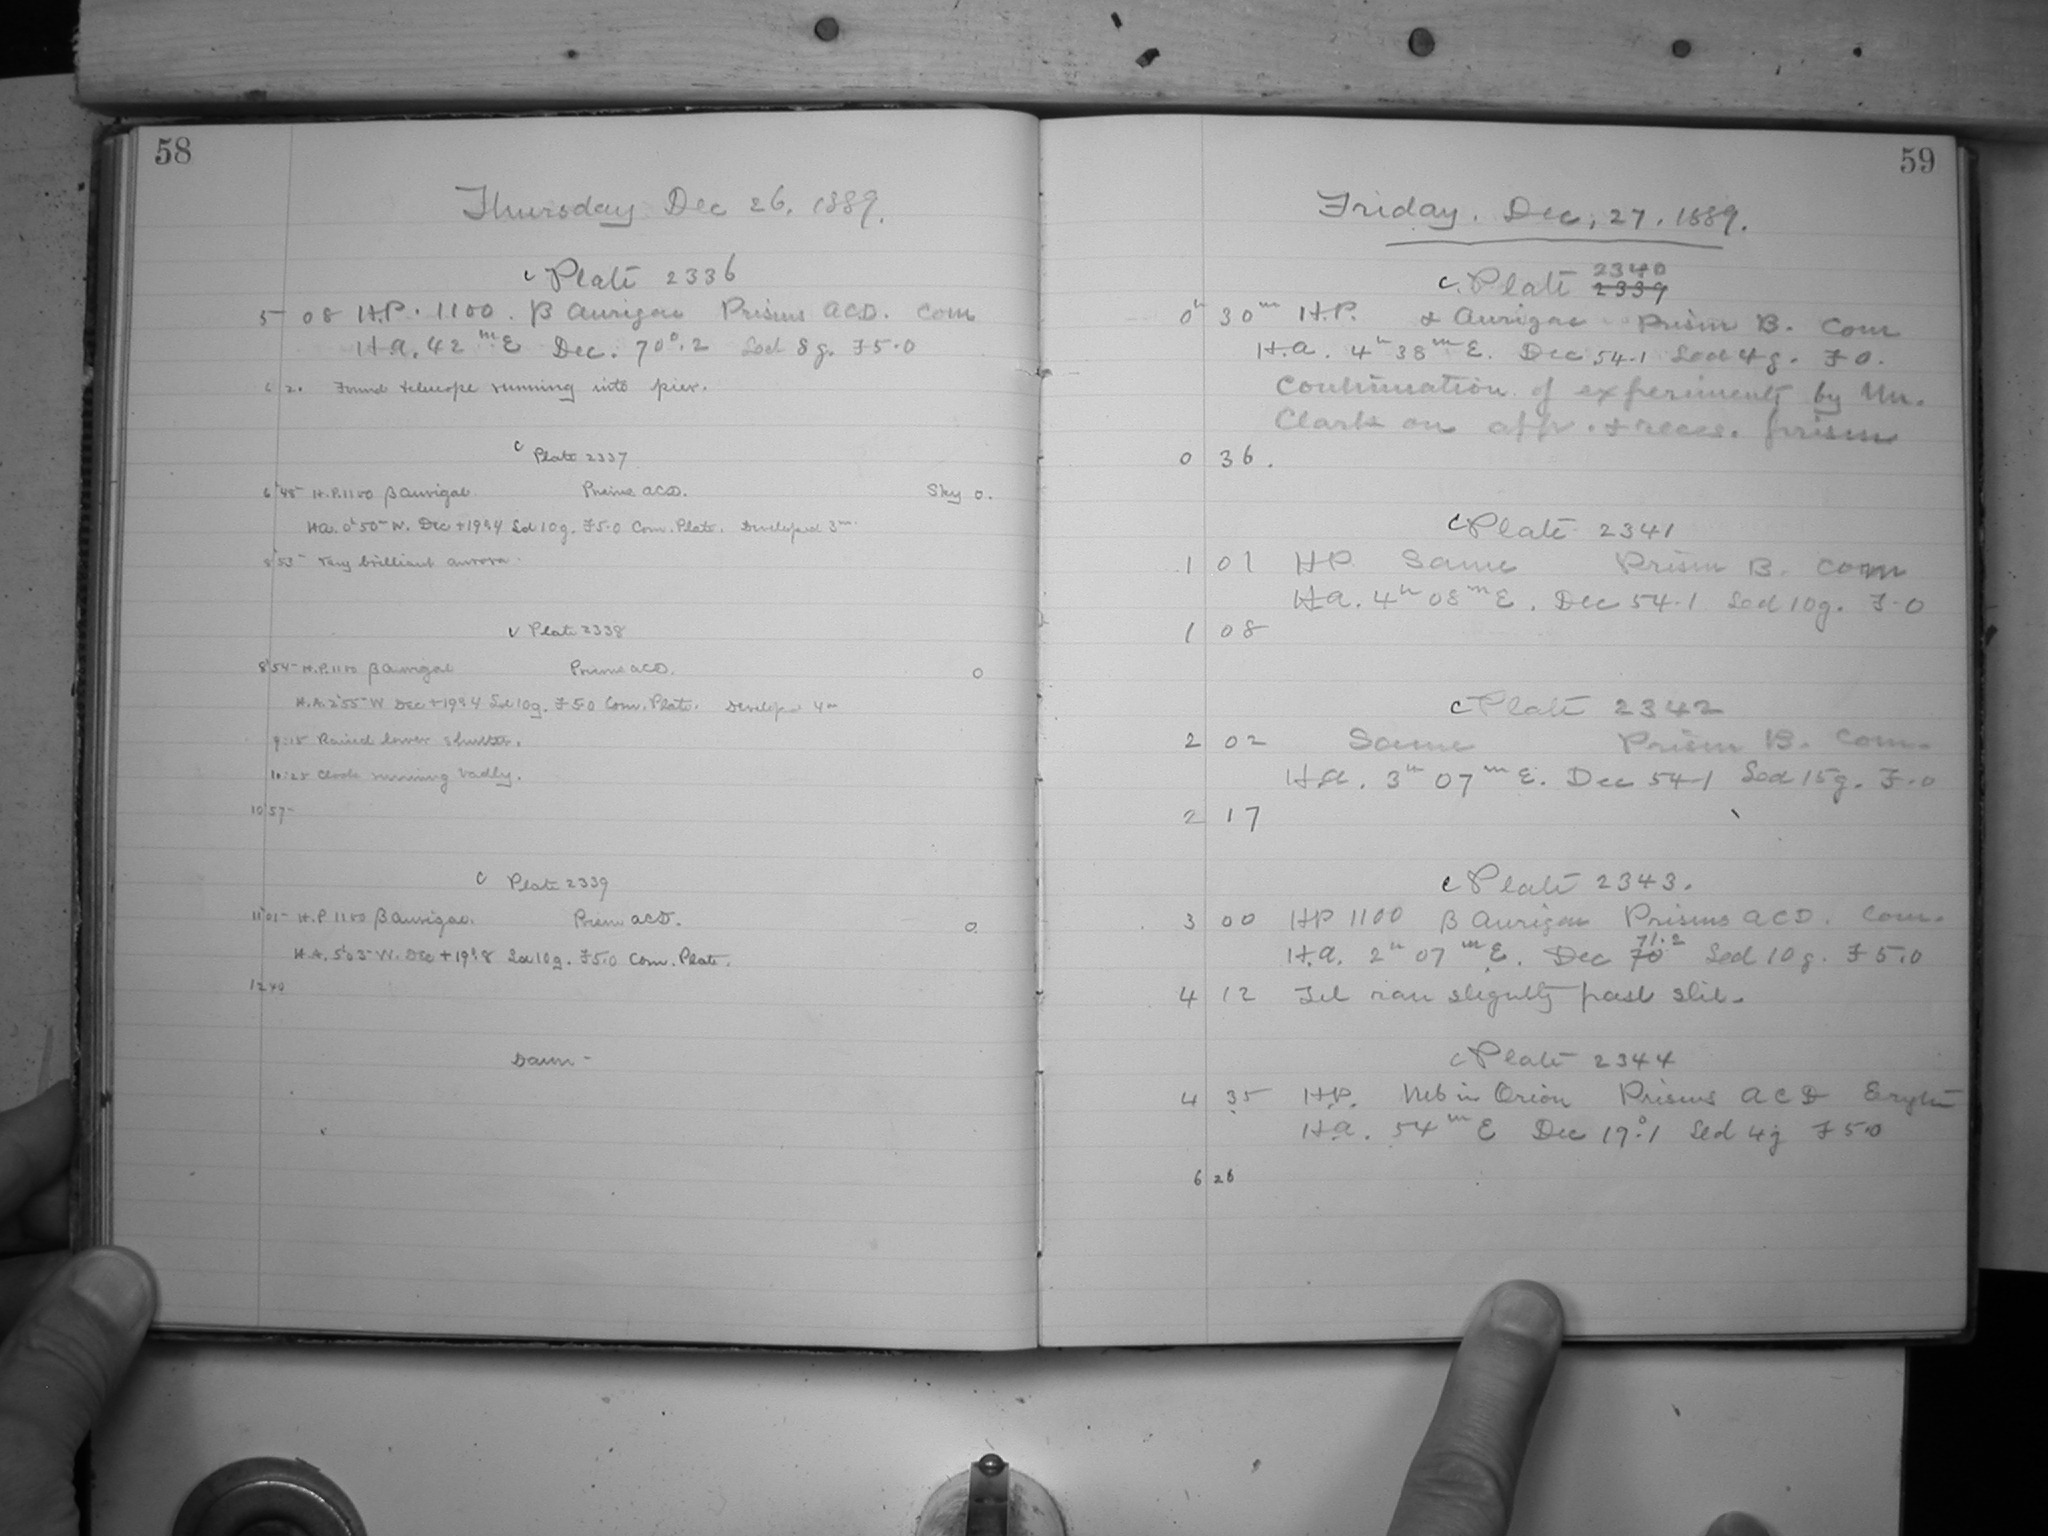 58
Thursday Dec 26, 1889.
c Plate 2336
5 08 H.P. 1100. β Aurigae Prisms ACD. Com
H.A. 42 m E Dec. 70°.2 Sed 8g. F5.0
6 2. Found telescope running into pier.
c Plate 2337
6 48 H.P. 1100 β Aurigae. Prisms ACD. Sky 0.
H.A. 0h 50m W. Dec +19°.4 Sed 10g. F5.0 Com. Plate. Developed 3m.
8 53 Very brilliant aurora.
c Plate 2338
8 54 H.P. 1100 β Aurigae Prisms ACD. 0
H.A. 2h 55m W Dec +19°.4 Sed 10g. F5.0 Com. Plate. Developed 4m
9:15 Raised lower shutter.
10:25 Clock running badly.
10 57
c Plate 2339
11 01 H.P. 1100 β Aurigae. Prism ACD. 0
H.A. 5h 03m W. Dec +19°.8 Sed 10g. F5.0 Com. Plate.
12 40
Dawn
59
Friday. Dec, 27, 1889.
c Plate 2339 2340
0h 30m H.P. α Aurigae Prism B. Com
H.A. 4h 38m E. Dec 54.1 Sed 4g. F 0.
Continuation of experiments by Mr.
Clark on app. & reces. prism
0 36.
c Plate 2341
1 01 HP Same Prism B. Com
H.A. 4h 08m E. Dec 54.1 Sed 10g. F.0
1 08
c Plate 2342
2 02 Same Prism B. Com.
H.A. 3h 07m E. Dec 54.1 Sed 15g. F.0
2 17
c Plate 2343.
3 00 HP 1100 β Aurigae Prisms ACD. Com.
H.A. 2h 07m E. Dec 70 71.2 Sed 10g. F5.0
4 12 Tel ran slightly past slit.
c Plate 2344
4 35 H.P. Neb in Orion Prisms ACD Eryth
H.A. 54m E Dec 19°.1 Sed 4g F5.0
6 26